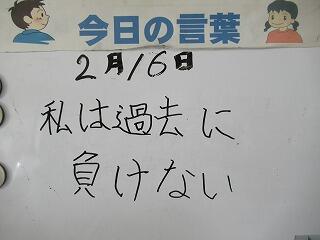 今日の言葉
2月16日
私は過去に
負けない